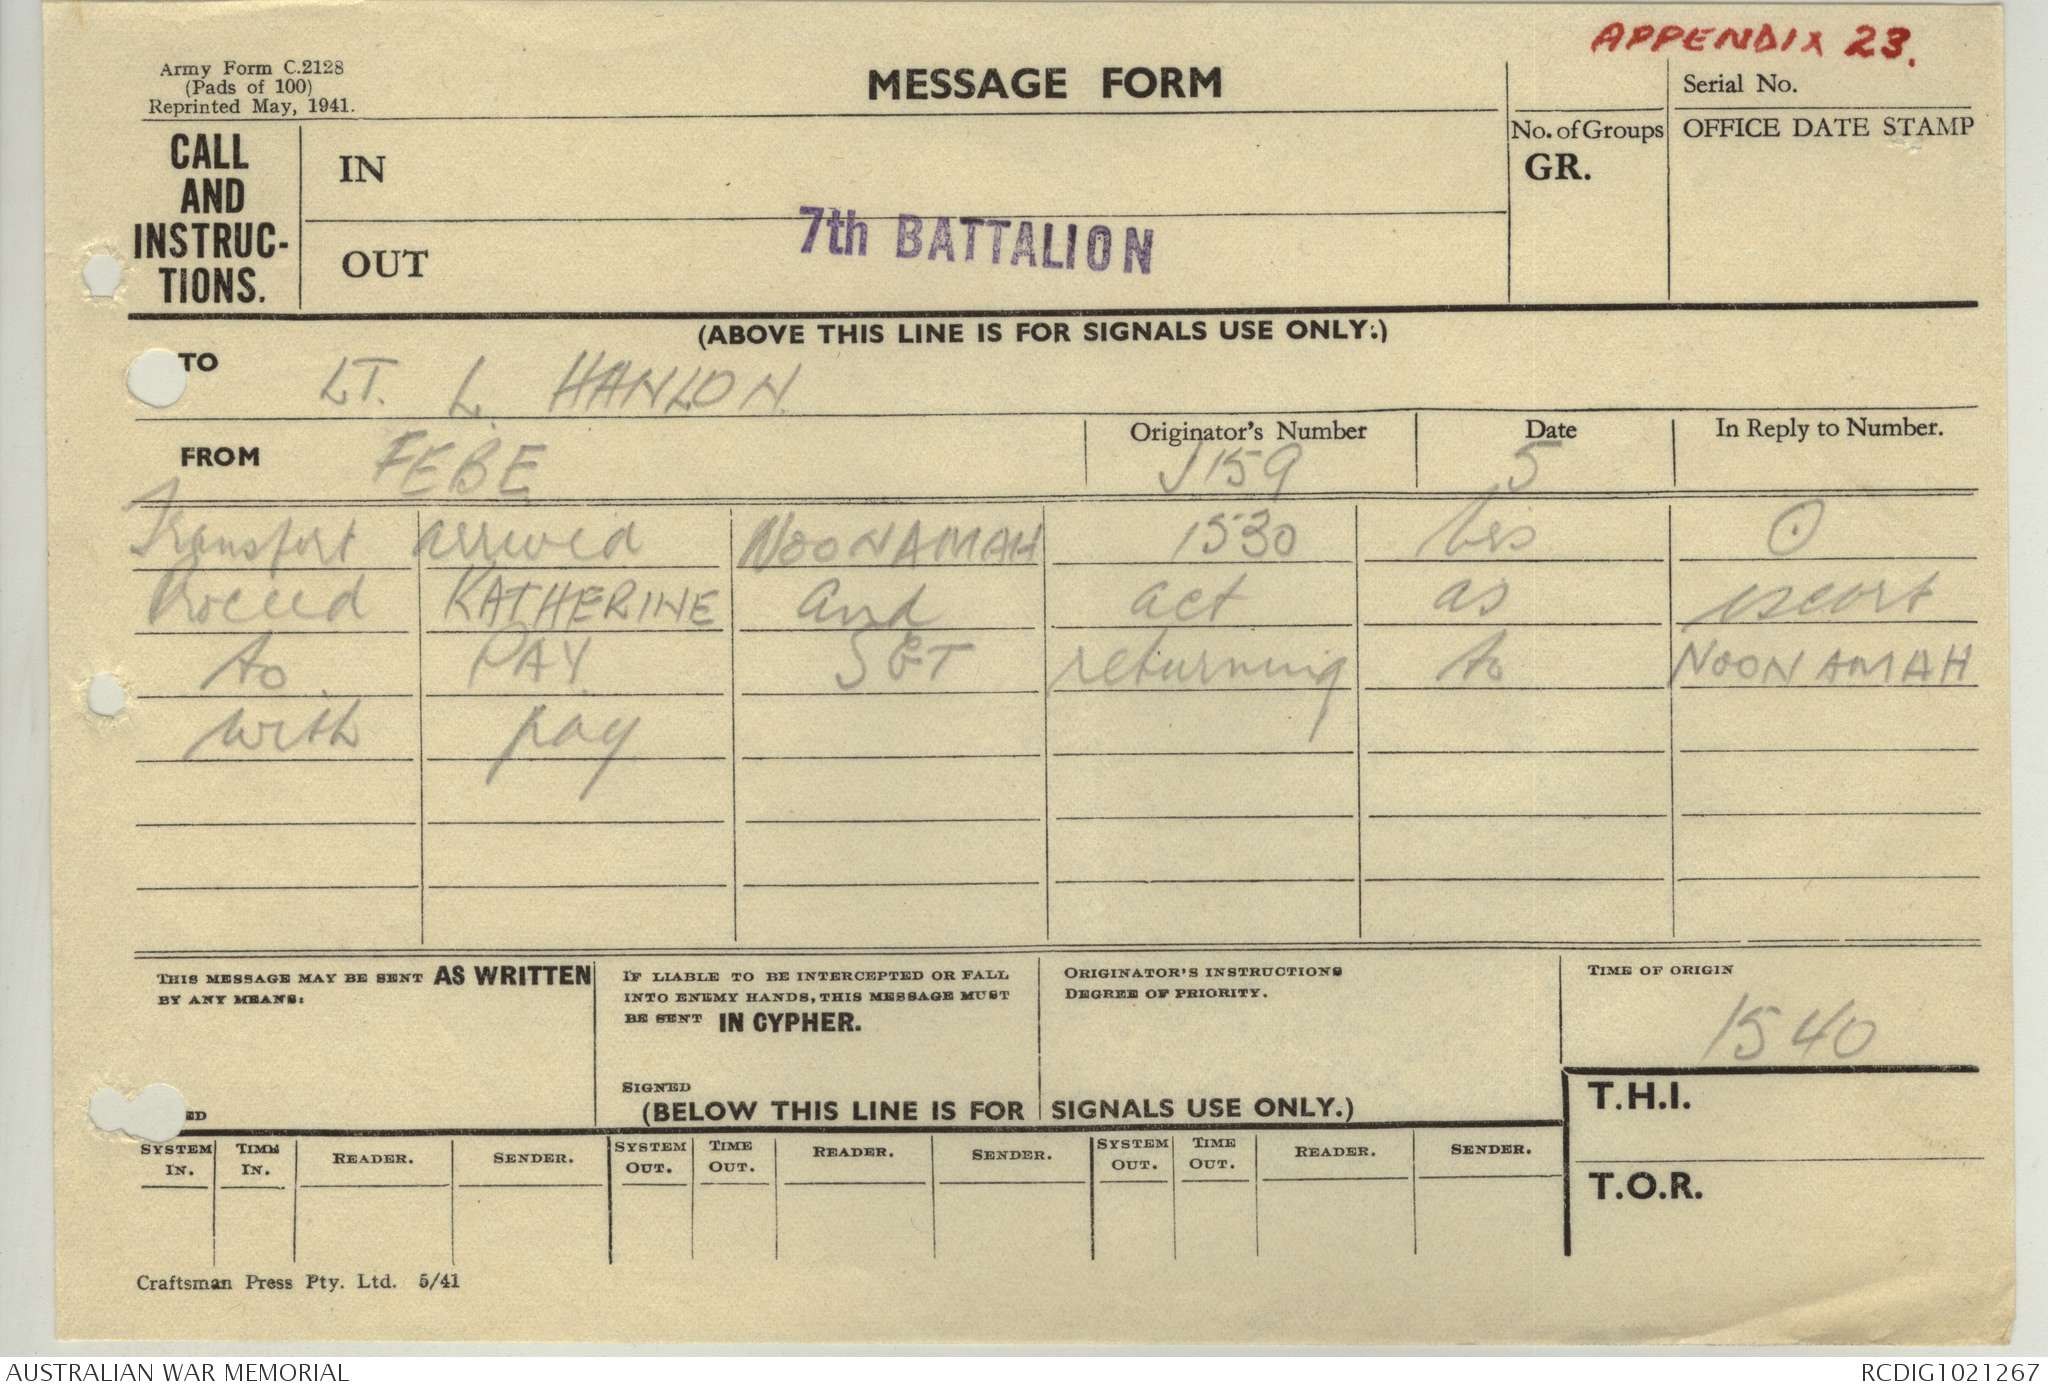 APPENDIX 23.
Army Form C.2128
(Pads of 100)
Reprinted May, 1941.
MESSAGE FORM
Serial No.
CALL
AND
INSTRUC-
TIONS.
IN
OUT
No. of Groups
GR.
OFFICE DATE STAMP
7th BATTALION
(ABOVE THIS LINE IS FOR SIGNALS USE ONLY.)
TO LT. L. HANLON.
FROM FEBE
Originator's Number J159
Date 5
In Reply to Number.
Transport arrived NOONAMAH 1530 hrs
Proceed KATHERINE and act as escort
to PAY SGT returning to NOONAMAH
with pay
THIS MESSAGE MAY BE SENT AS WRITTEN
BY ANY MEANS:
IF LIABLE TO BE INTERCEPTED OR FALL
INTO ENEMY HANDS, THIS MESSAGE MUST
BE SENT IN CYPHER.
SIGNED
ORIGINATOR'S INSTRUCTIONS
DEGREE OF PRIORITY.
TIME OF ORIGIN
1540
(BELOW THIS LINE IS FOR SIGNALS USE ONLY.)
T.H.I.
T.O.R.
SYSTEM IN. TIME IN. READER. SENDER. SYSTEM OUT. TIME OUT. READER. SENDER. SYSTEM OUT. TIME OUT. READER. SENDER.
Craftsman Press Pty. Ltd. 5/41
AUSTRALIAN WAR MEMORIAL
RCDIG1021267